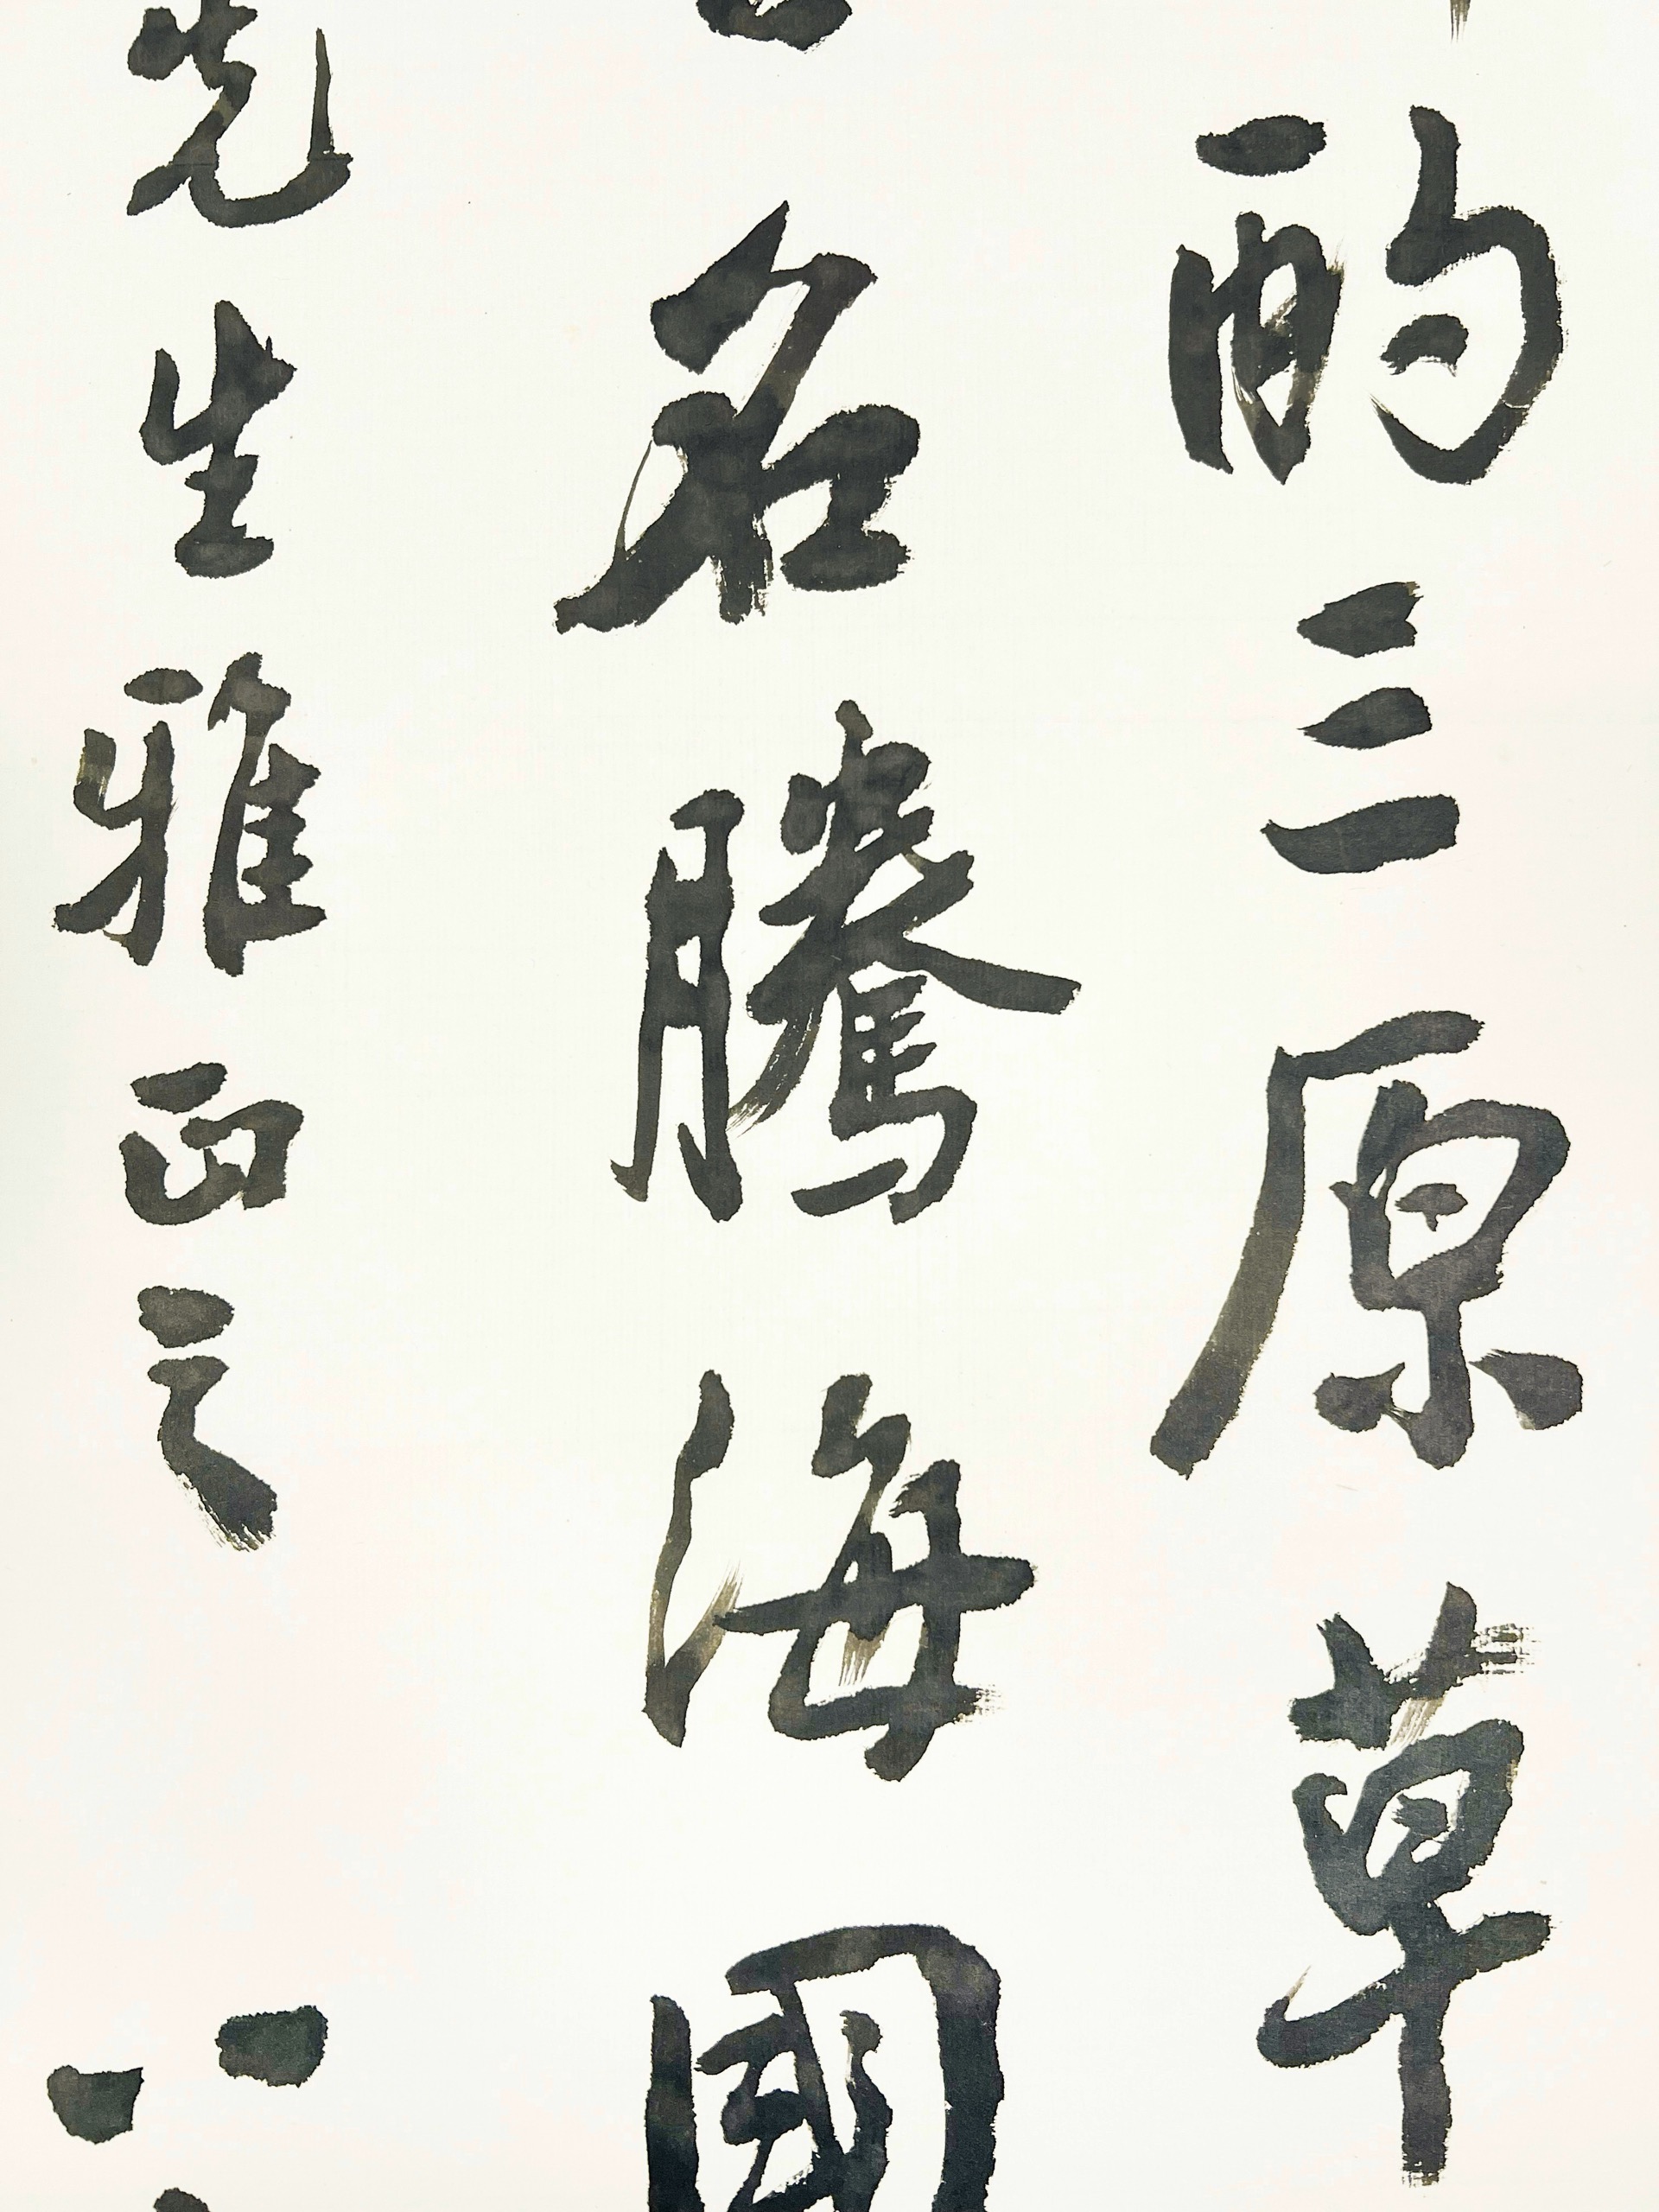 酌三原草
名騰海國
先生雅正之